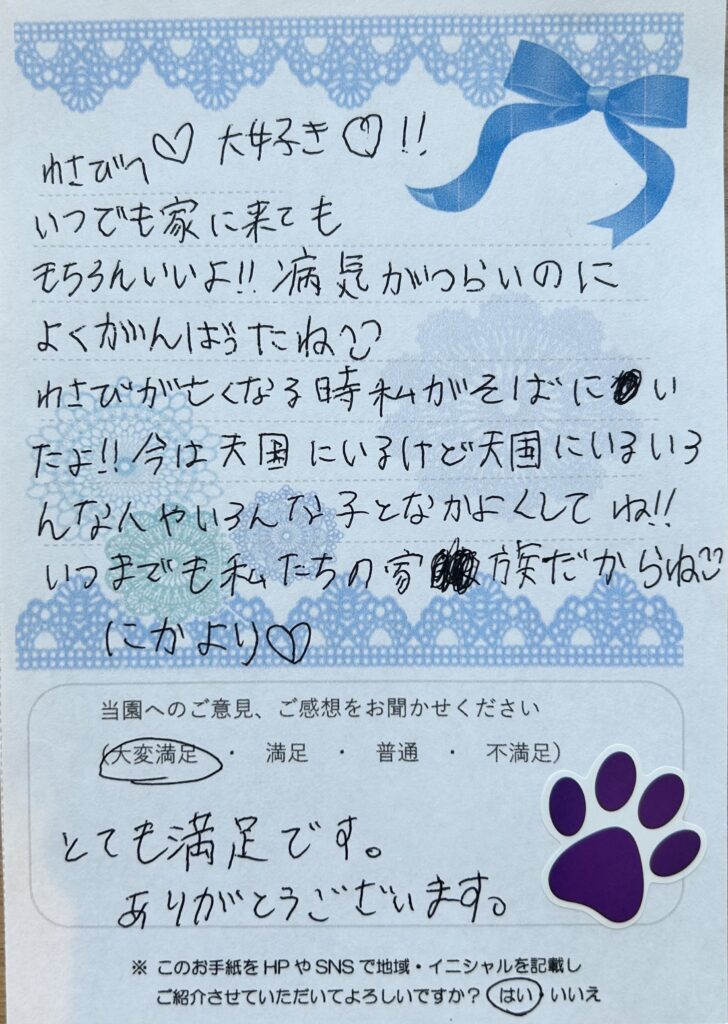 わさびへ♡大好き♡!!
いつでも家に来ても
もちろんいいよ!!病気がつらいのに
よくがんばったね
わさびが亡くなる時私がそばにい
たよ!!今は天国にいるけど天国にいるいろ
んな人やいろんな子となかよくしてね!!
いつまでも私たちの家族だからね
にかより♡
当園へのご意見、ご感想をお聞かせください
(大変満足 ・ 満足 ・ 普通 ・ 不満足)
とても満足です。
ありがとうございます。
※ このお手紙をHPやSNSで地域・イニシャルを記載し
ご紹介させていただいてよろしいですか? はい・いいえ